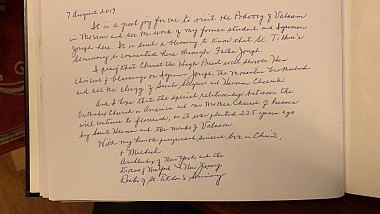 7 August 2019
It is a great joy for me to visit the Podvory of Valaam
in Moscow and see the work of my former student and Igumen
Joseph here. It is such a blessing to know that St. Tikhon's
Seminary is connected here through Father Joseph.
I pray that Christ the High Priest will shower His
choicest blessings on Igumen Joseph, the Monastic Brotherhood
and all the clergy of Saints Sergius and Herman Church!
And I hope that the special relationship between the
Orthodox Church in America and our Mother Church of Russia
will continue to flourish, as it was planted 225 years ago
by Saint Herman and the monks of Valaam.
With my humble prayers and sincere love in Christ,
+ Michael
Archbishop of New York and the
Diocese of New York & New Jersey
Rector of St. Tikhon's Seminary